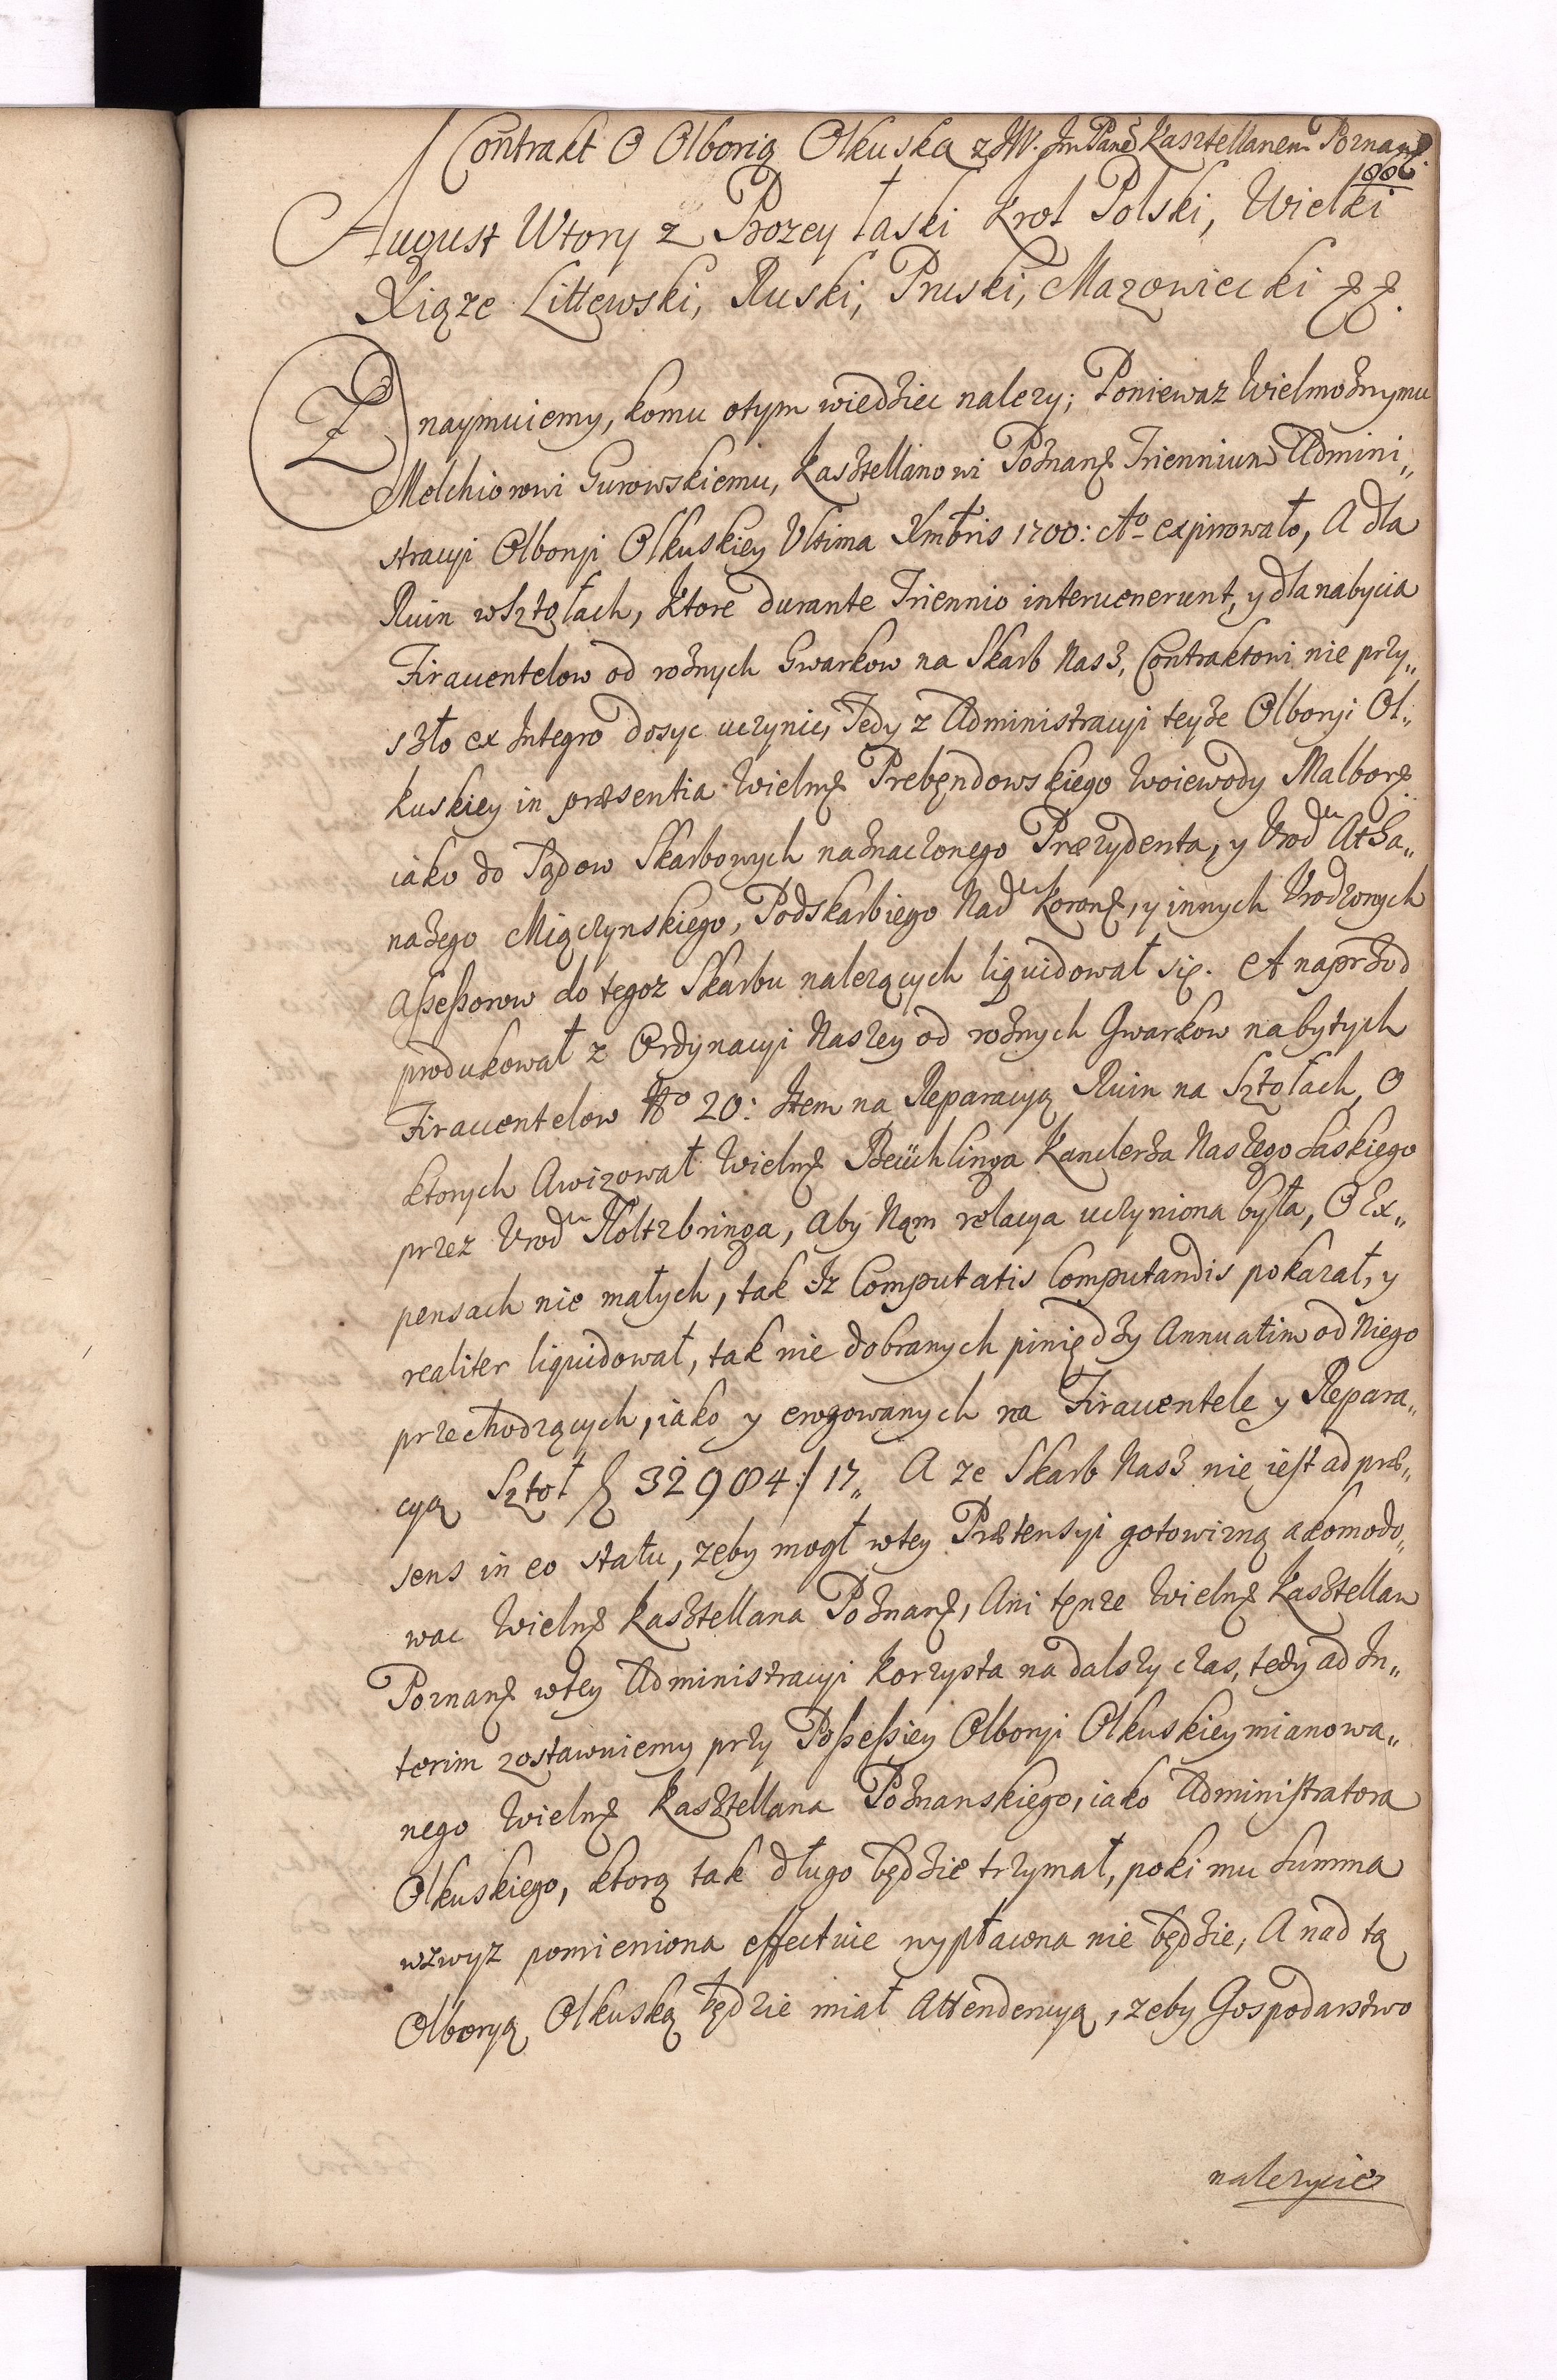 Contrakt O Olborią Olkuska z JW. Jm Pane Kasztellanem Poznanſ.
100
August Wtory z Bozey łaski Krol Polski, Wielki
Xiąze Littewski, Ruski, Pruski, Mazowiecki &&.
Znaymuiemy, komu otym wiedziec nalezy; Poniewaz Wielmożnymu
Melchiorowi Gurowskiemu, Kasztellanowi Poznanſ Triennium Admini„
stracyi Olboryi Olkuskiey Ultima Xmbris 1700: Ao expirowało, A dla
Ruin w Sztołach, ktore durante Triennio interuenerunt, y dla nabycia
Firauentelow od rożnych Gwarkow na Skarb Nasz, Contraktowi nie przy„
szło ex Integro dosyc uczynic, Tedy z Administracyi teyże Olboryi Ol„
kuskiey in præsentia Wielmſ Prebęndowskiego Woiewody Malborſ.
iako do Sądow Skarbowych naznaczonego Præzydenta, y Urodu Atha„
nażego Miączynskiego, Podskarbiego Nadu Koronſ, y innych Urodzonych
Aſseſsorow do tegoz Skarbu nalezących liquidował się. A naprzod
produkował z Ordynacyi Naszey od rożnych Gwarkow nabytych
Firauentelow No 20: Item na Reparacyą Ruin na Sztołach, O
ktorych Awizował Wielmſ Beüchlinga Kanclerza Naszego Saskiego
przez Urodu Holtzbringa, aby Nąm relacya uczyniona była, O Ex„
pensach nie małych, tak Iz Computatis Computandis pokazał, y
realiter liquidował, tak nie dobranych piniędzy Annuatim od Niego
przechodzących, iako y erogowanych na Firauentele y Repara„
cyą Sztoł f 32904:/17„ A ze Skarb Nasz nie ieſt ad præ„
sens in eo statu, zeby mogł wtey Prætensyi gotowizną akomodo„
wac Wielmſ Kasztellana Poznanſ, Ani tęnze Wielmſ Kasztellan
Poznanſ wtey Administracyi korzysta na dalszy czas, tedy ad In„
terim zostawuiemy przy Poſseſsiey Olboryi Olkuskiey mianowa„
nego Wielmſ Kasztellana Poznanskiego, iako Adminiſtratora
Olkuskiego, ktorą tak długo będzie trzymał, poki mu Summa
wzwyz pomieniona effectiue wypłacona nie będzie, A nad tą
Olboryą Olkuską będzie miał Attendencyą, zeby Gospodarstwo
nalezycie